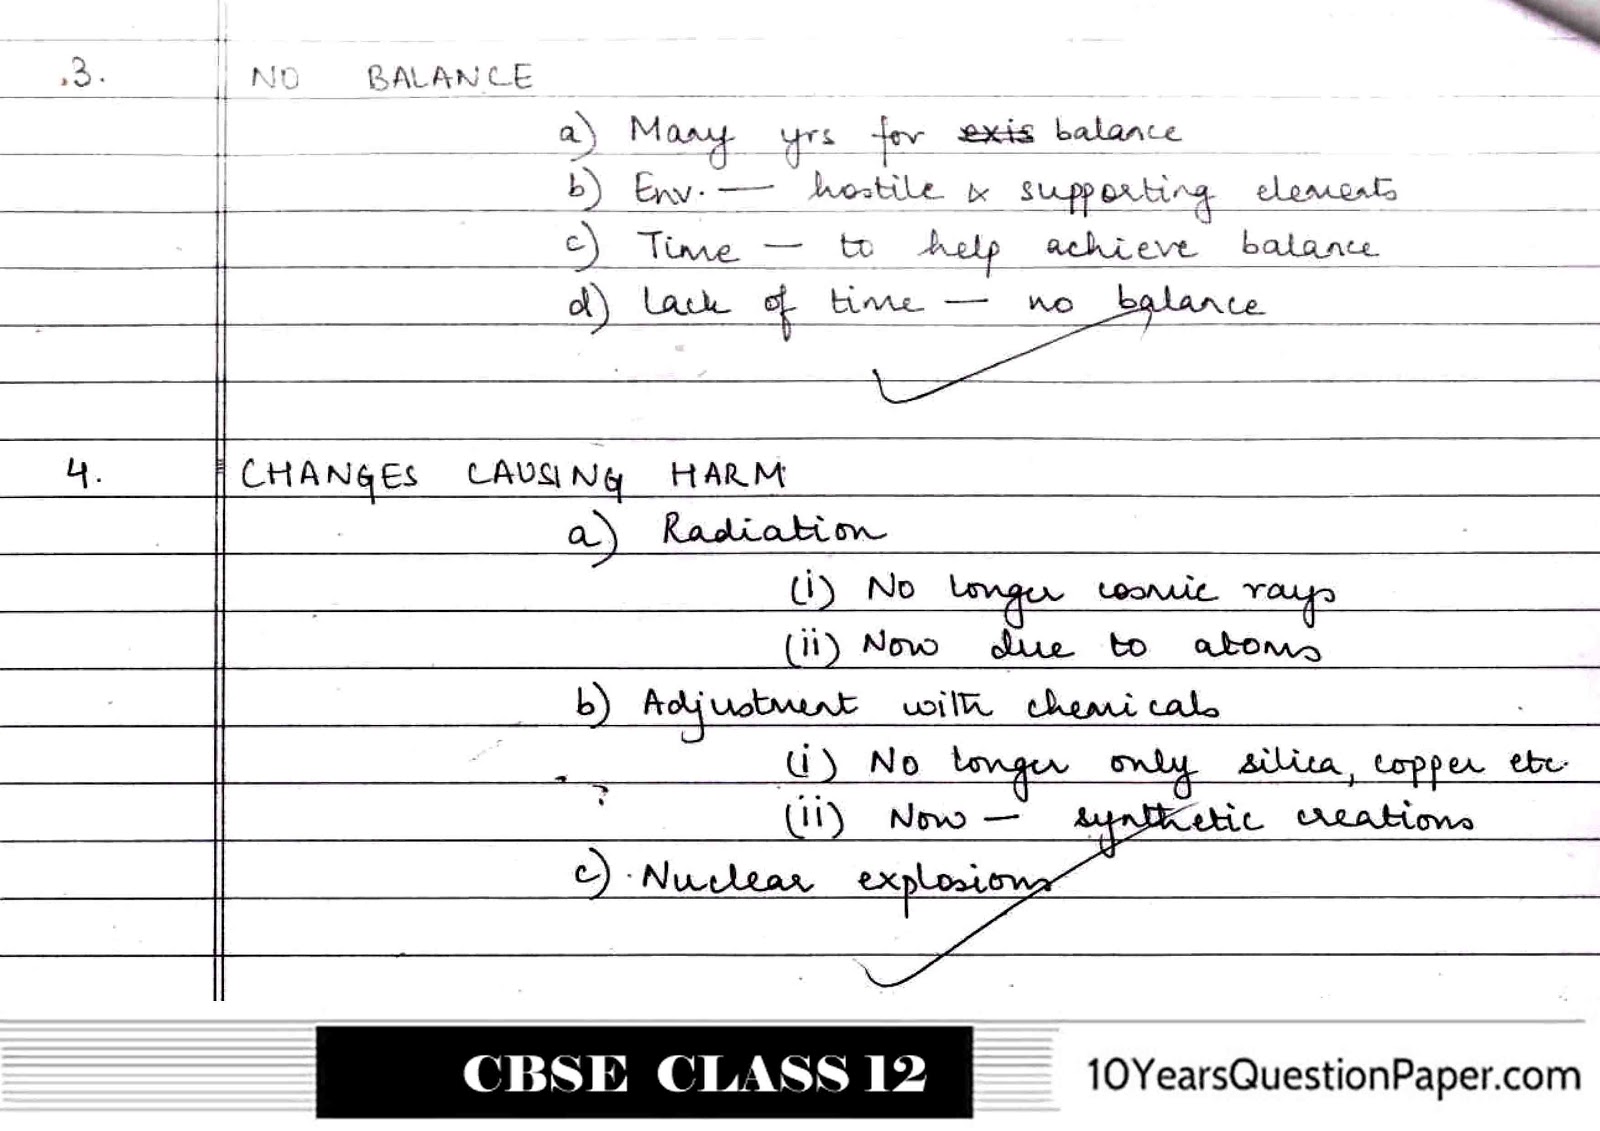 3. NO BALANCE
a) Many yrs for exis balance
b) Env. — hostile & supporting elements
c) Time — to help achieve balance
d) Lack of time — no balance
4. CHANGES CAUSING HARM
a) Radiation
(i) No longer cosmic rays
(ii) Now due to atoms
b) Adjustment with chemicals
(i) No longer only silica, copper etc.
(ii) Now — synthetic creations
c) Nuclear explosions
CBSE CLASS 12
10YearsQuestionPaper.com